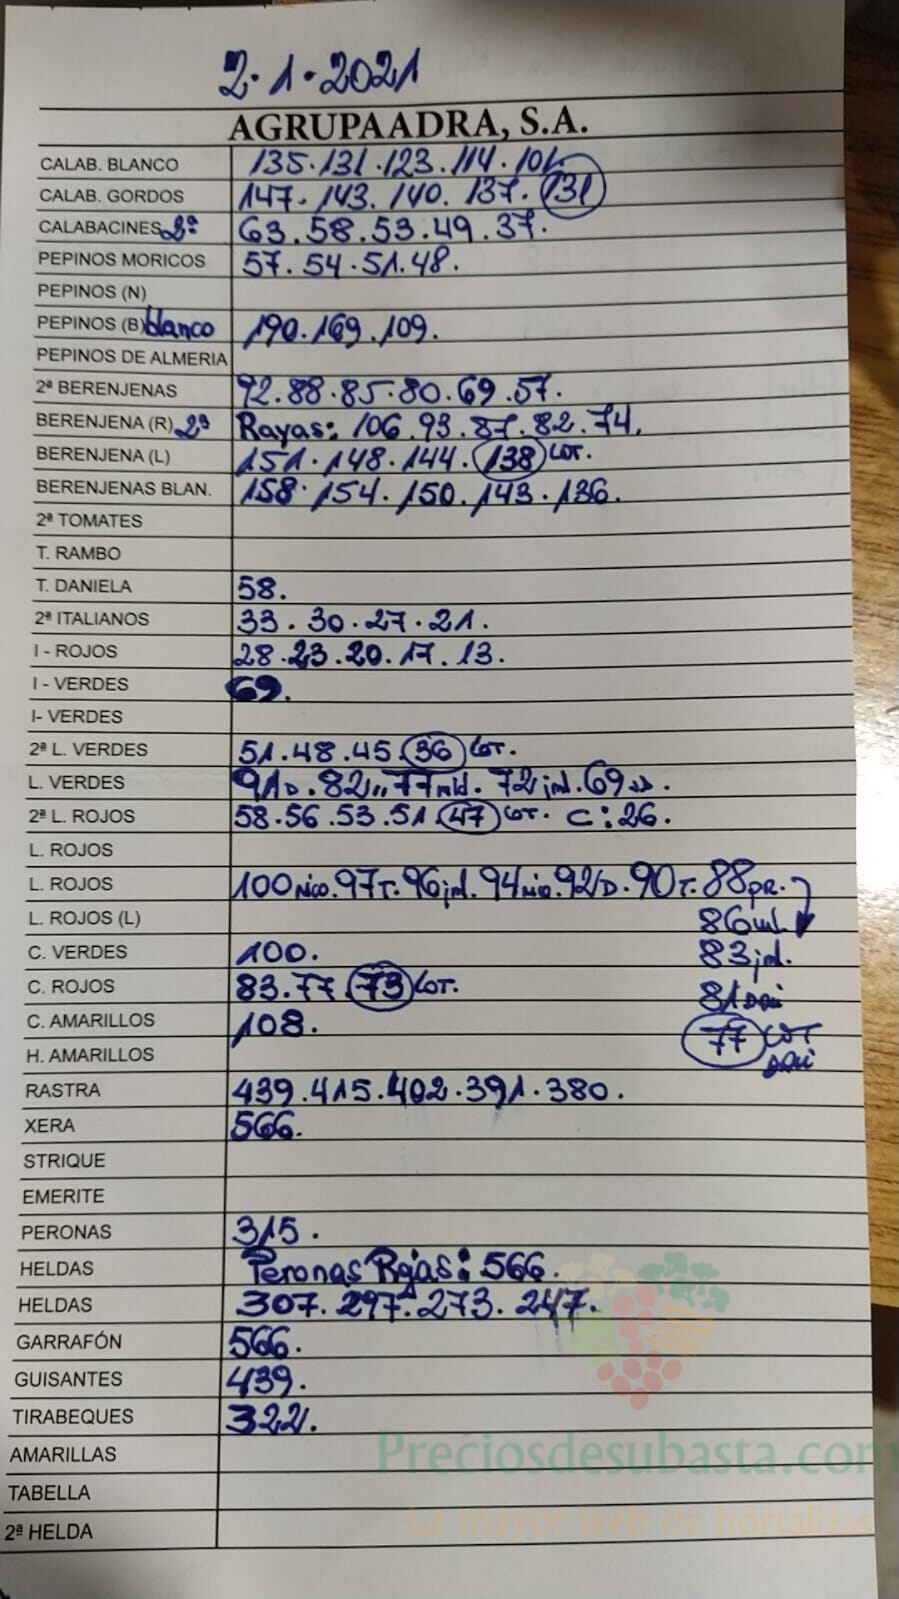 2.1.2021
AGRUPAADRA, S.A.
CALAB. BLANCO 135.131.123.114.101.
CALAB. GORDOS 147.143.140.137.131
CALABACINES 2ª 63.58.53.49.37.
PEPINOS MORICOS 57.54.51.48.
PEPINOS (N)
PEPINOS (B) blanco 190.169.109.
PEPINOS DE ALMERIA
2ª BERENJENAS 92.88.85.80.69.57.
BERENJENA (R) 2ª Rayas: 106.93.87.82.74.
BERENJENA (L) 151.148.144.138 COT.
BERENJENAS BLAN. 158.154.150.143.136.
2ª TOMATES
T. RAMBO
T. DANIELA 58.
2ª ITALIANOS 33.30.27.21.
I - ROJOS 28.23.20.17.13.
I - VERDES 69.
I- VERDES
2ª L. VERDES 51.48.45.36 COT.
L. VERDES 91D.82.77 72 jml.69
2ª L. ROJOS 58.56.53.51.47 COT. C:26.
L. ROJOS
L. ROJOS 100 nico.97T.96jml.94nico.92D.90T.88pr.
L. ROJOS (L) 86ml.
C. VERDES 100. 83jml.
C. ROJOS 83.77.73 COT. 81
C. AMARILLOS 108. 77 COT
H. AMARILLOS
RASTRA 439.415.402.391.380.
XERA 566.
STRIQUE
EMERITE
PERONAS 315.
HELDAS Peronas Rojas: 566.
HELDAS 307.297.273.247.
GARRAFÓN 566.
GUISANTES 439.
TIRABEQUES 322.
AMARILLAS
Preciosdesubasta.com
TABELLA
La mayor web de hortalizas
2ª HELDA